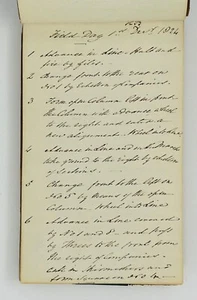 Field Day 1st Decr 1824
1 Advance in Line - Halt and
fire by files.
2 Change front to the rear on
No 1 by Echellon of Companies.
3 Form open Column left in front
the Column
to the right and
new alignment. Wheel into line
4 Advance in Line and
ground to the right by echellon
of Sections.
5 Change front to the left on
No 5 by means of the open
Column. Wheel into Line
6 Advance in Line covered
by No 1 and 8 - and
by Threes to the front from
the right of Companies.
call in Skirmishers and
form Square on No